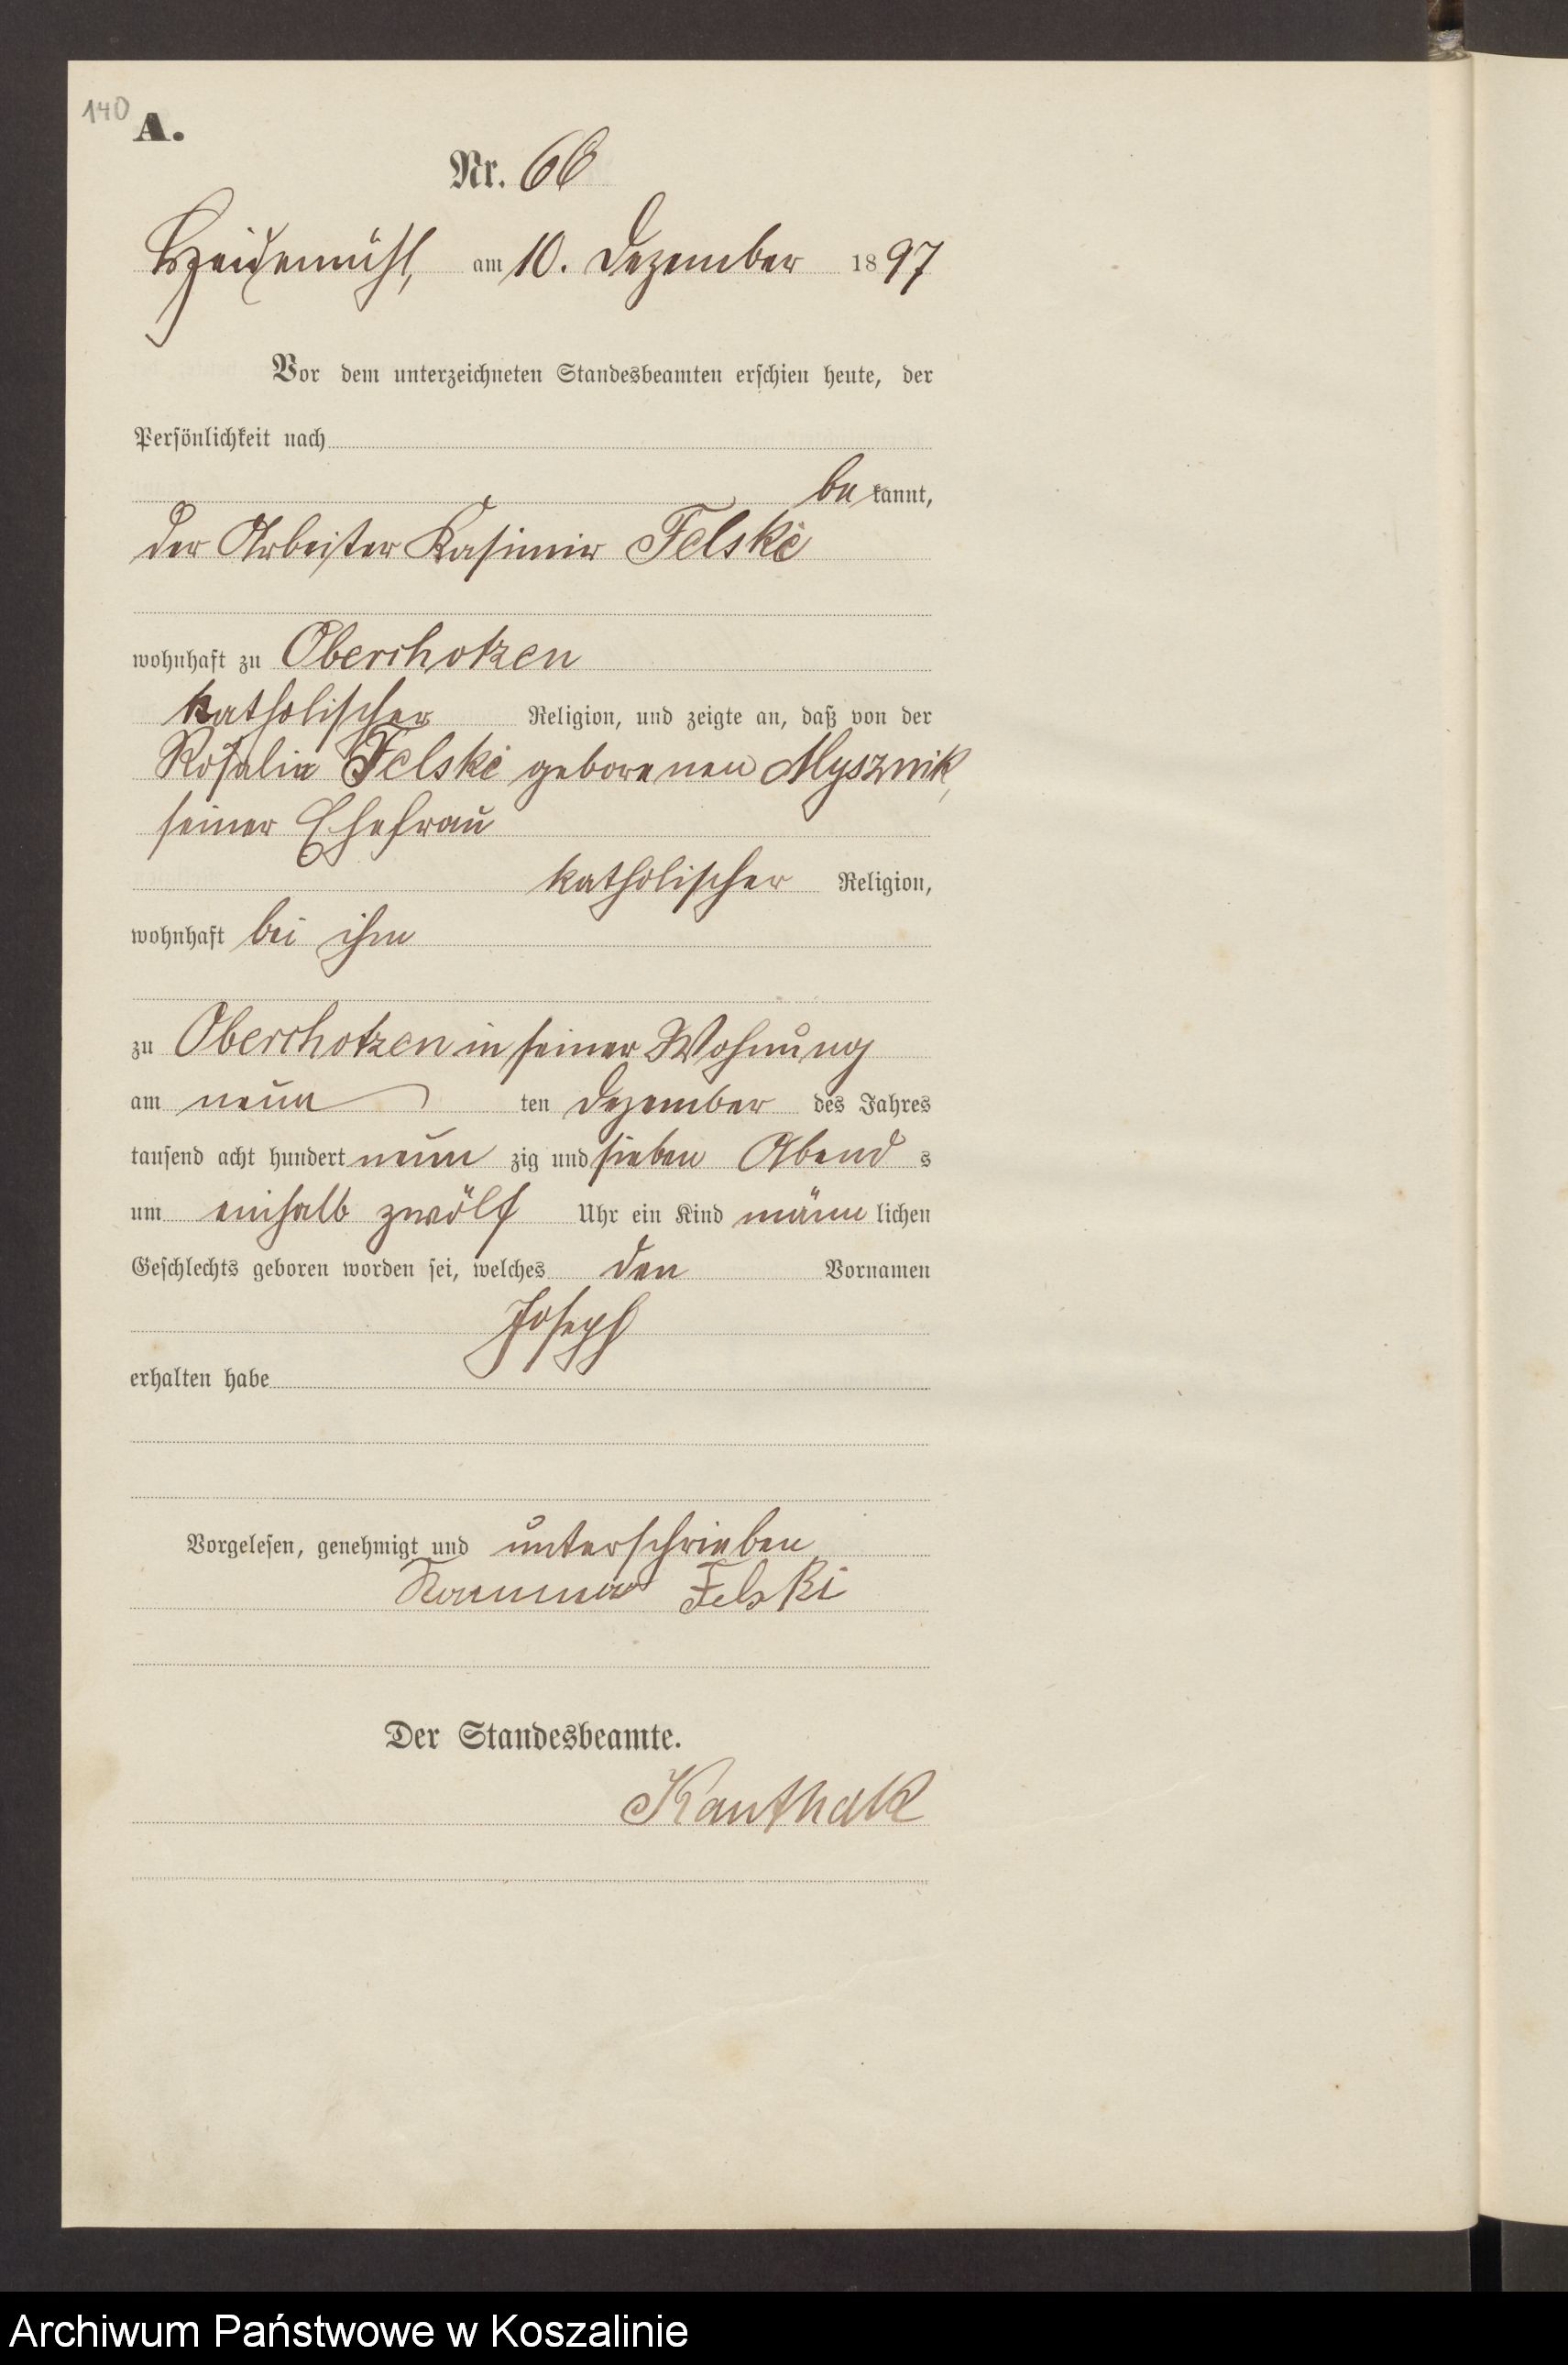 140
A.
Nr. 66
Heidemühl, am 10. Dezember 1897
Vor dem unterzeichneten Standesbeamten erschien heute, der
Persönlichkeit nach
bekannt,
der Arbeiter Kasimir Felski
wohnhaft zu Oberchotzen
katholischer Religion, und zeigte an, daß von der
Rosalie Felski geborenen Mysznik,
seiner Ehefrau
katholischer Religion,
wohnhaft bei ihm
zu Oberchotzen in seiner Wohnung
am neun ten Dezember des Jahres
tausend acht hundert neun zig und sieben Abend s
um einhalb zwölf Uhr ein Kind männ lichen
Geschlechts geboren worden sei, welches den Vornamen
Joseph
erhalten habe
Vorgelesen, genehmigt und unterschrieben
Felski
Der Standesbeamte.
Kanthak
Archiwum Państwowe w Koszalinie